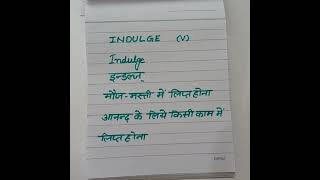 INDULGE (V)
Indulge
इन्डल्ज्
मौज-मस्ती में लिप्त होना
आनन्द के लिये किसी काम में
लिप्त होना